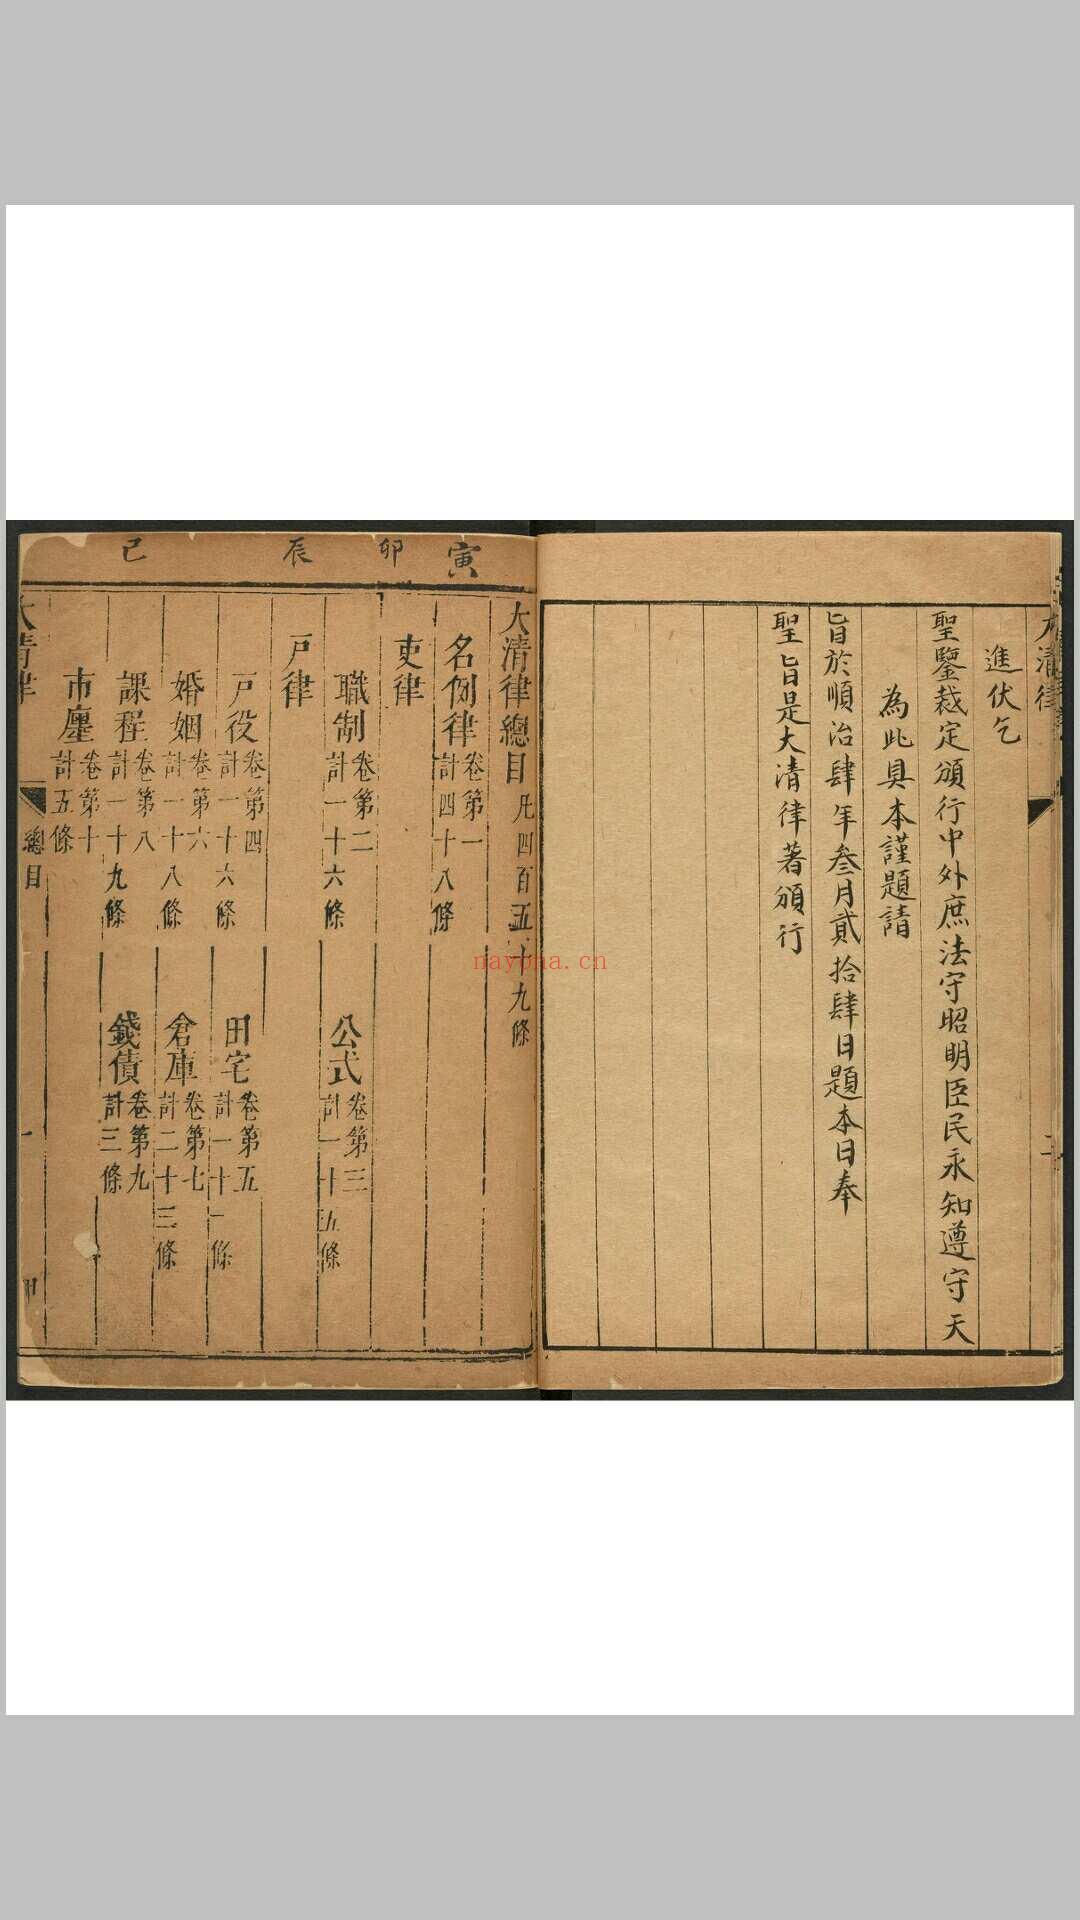 大清律
進伏乞
聖鑒裁定頒行中外庶法守昭明臣民永知遵守天
為此具本謹題請
旨於順治肆年叁月貳拾肆日題本日奉
聖旨是大清律著頒行
寅 卯 辰 巳
大清律總目 凡四百五十九條
名例律 卷第一 計四十八條
吏律
職制 卷第二 計一十六條 公式 卷第三 計一十五條
戶律
戶役 卷第四 計一十六條 田宅 卷第五 計一十一條
婚姻 卷第六 計一十八條 倉庫 卷第七 計二十三條
課程 卷第八 計一十九條 錢債 卷第九 計三條
市廛 卷第十 計五條
大清律 總目 一
nayona.cn